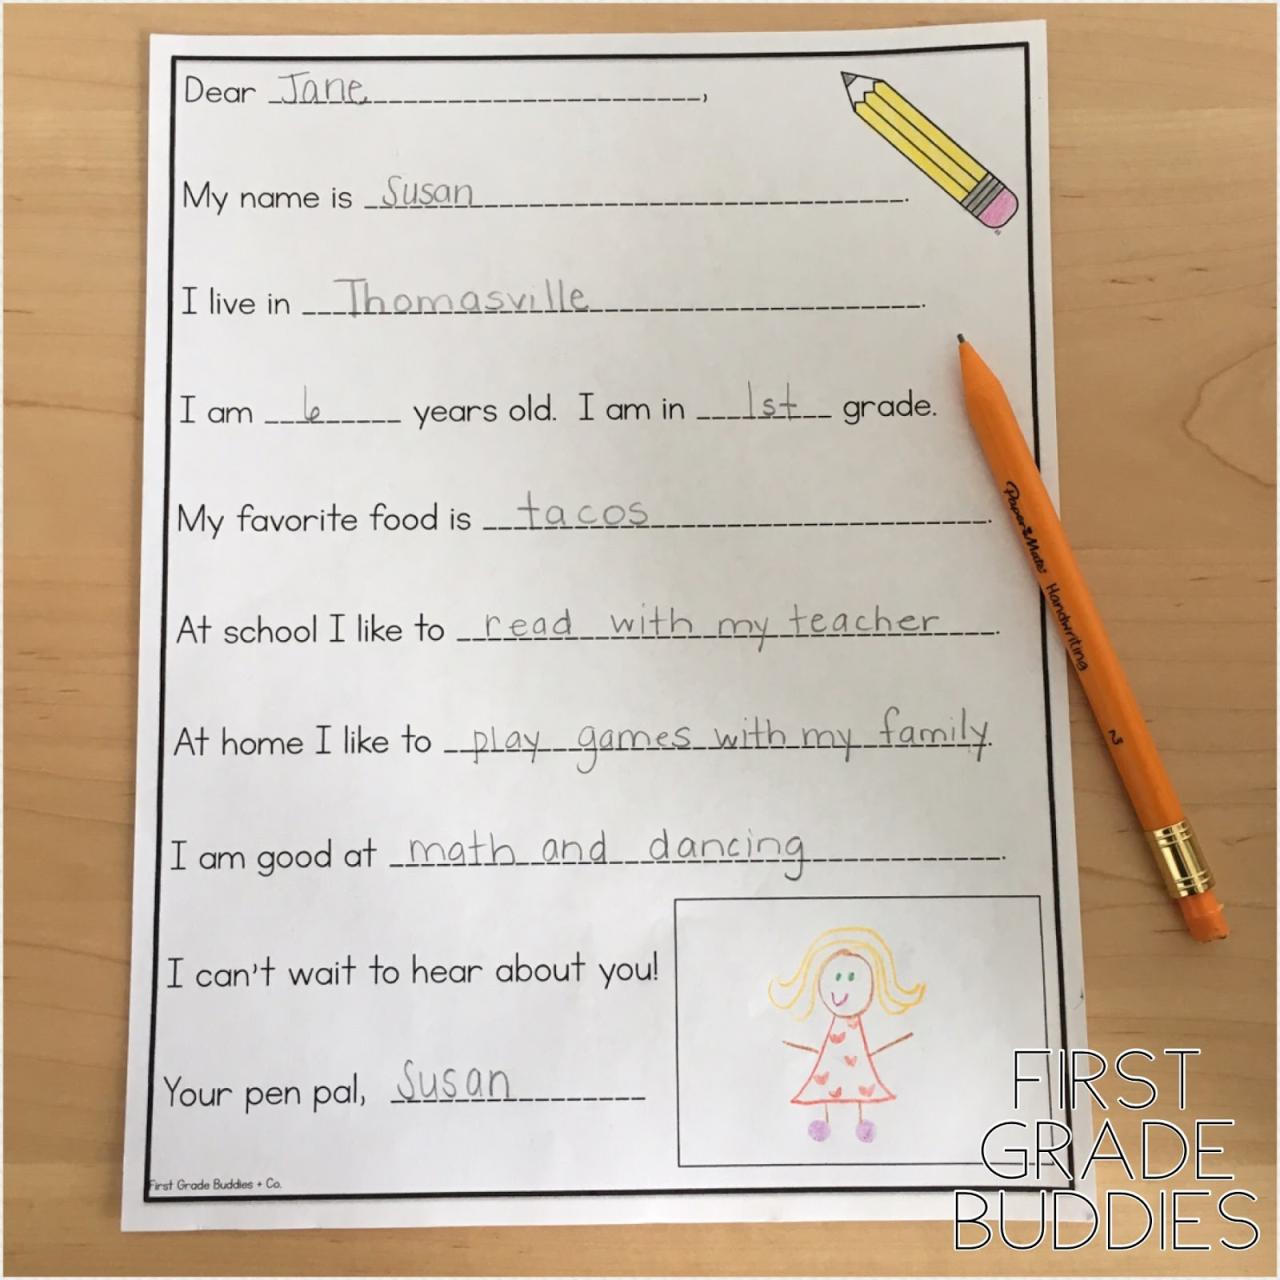 Dear Jane,
My name is Susan.
I live in Thomasville.
I am 6 years old. I am in 1st grade.
My favorite food is tacos.
At school I like to read with my teacher.
At home I like to play games with my family.
I am good at math and dancing.
I can't wait to hear about you!
Your pen pal, Susan
First Grade Buddies + Co.
Paper Mate Handwriting 2
FIRST
GRADE
BUDDIES